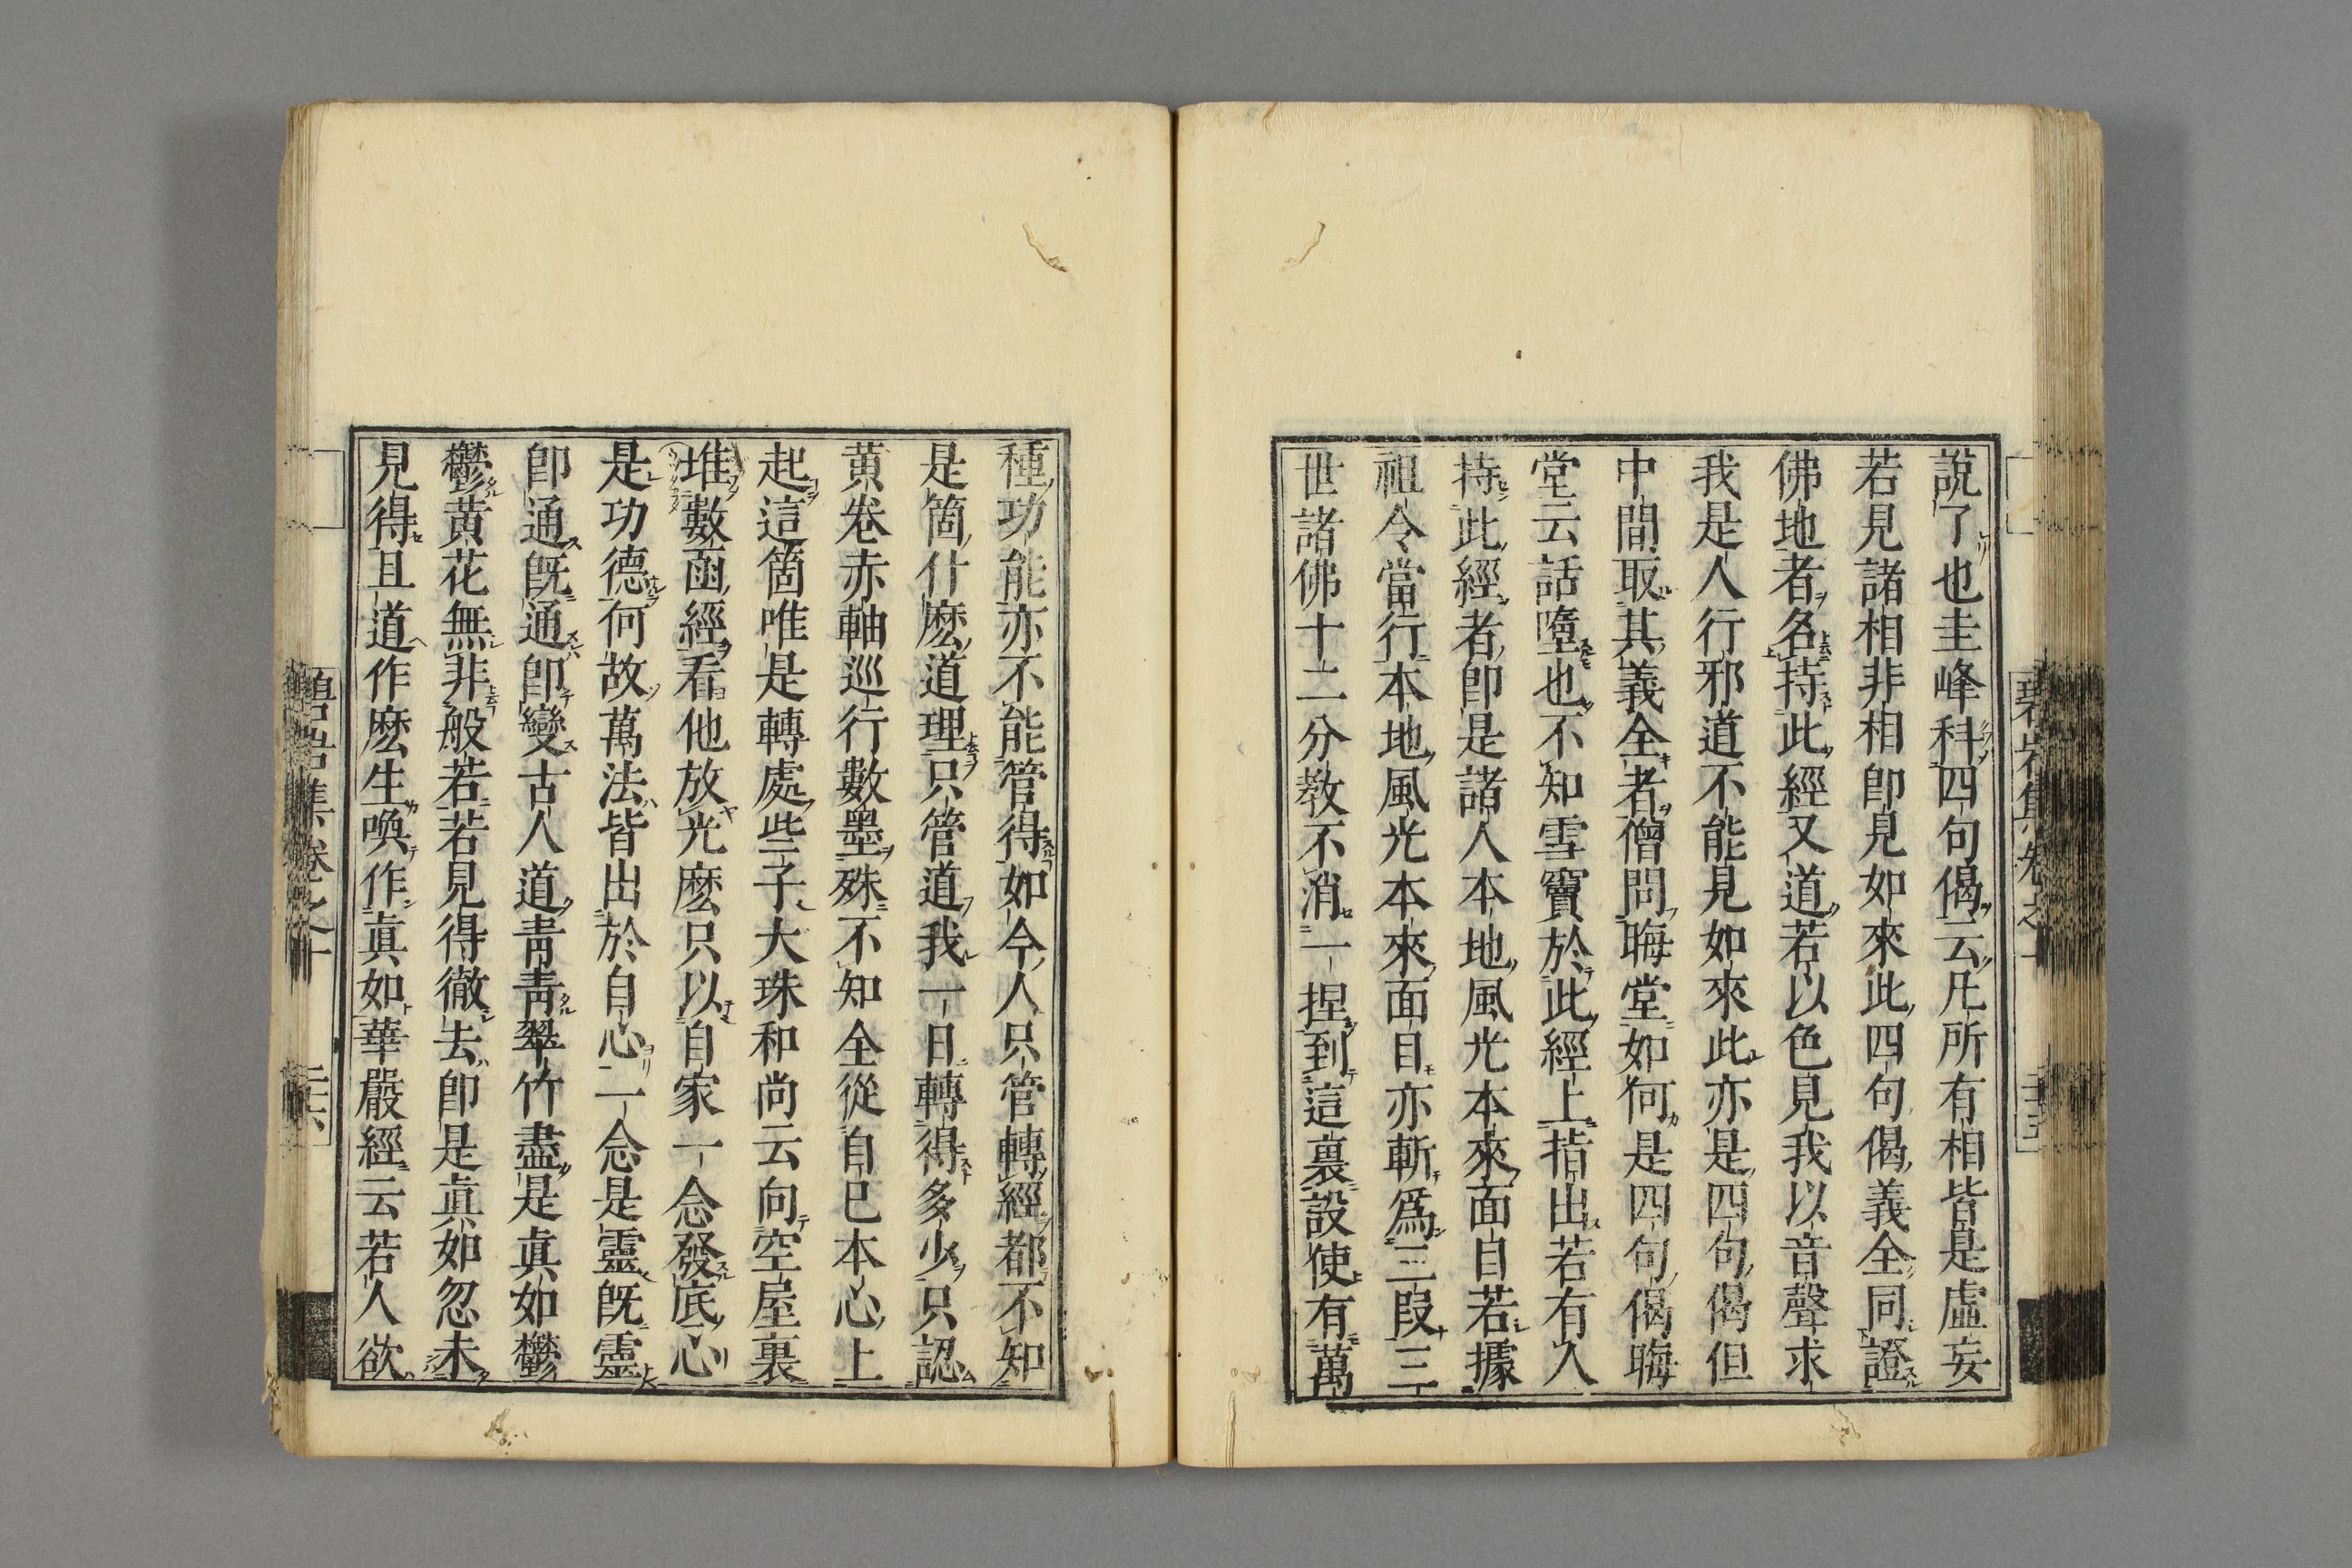 說了也圭峰科四句偈云凡所有相皆是虛妄
若見諸相非相卽見如來此四句偈義全同證
佛地者名持此經又道若以色見我以音聲求
我是人行邪道不能見如來此亦是四句偈但
中間取其義全者僧問晦堂如何是四句偈晦
堂云話墮也不知雪竇於此經上指出若有人
持此經者卽是諸人本地風光本來面目若據
祖令當行本地風光本來面目亦斬爲三段三
世諸佛十二分敎不消一捏到這裏設使有萬
種功能亦不能管得如今人只管轉經都不知
是箇什麽道理只管道我一日轉得多少只認
黃卷赤軸巡行數墨殊不知全從自己本心上
起這箇唯是轉處些子大珠和尚云向空屋裏
堆數函經看他放光麽只以自家一念發底心
是功德何故萬法皆出於自心一念是靈旣靈
卽通旣通卽變古人道靑靑翠竹盡是眞如鬱
鬱黃花無非般若若見得徹去卽是眞如忽未
見得且道作麽生喚作眞如華嚴經云若人欲